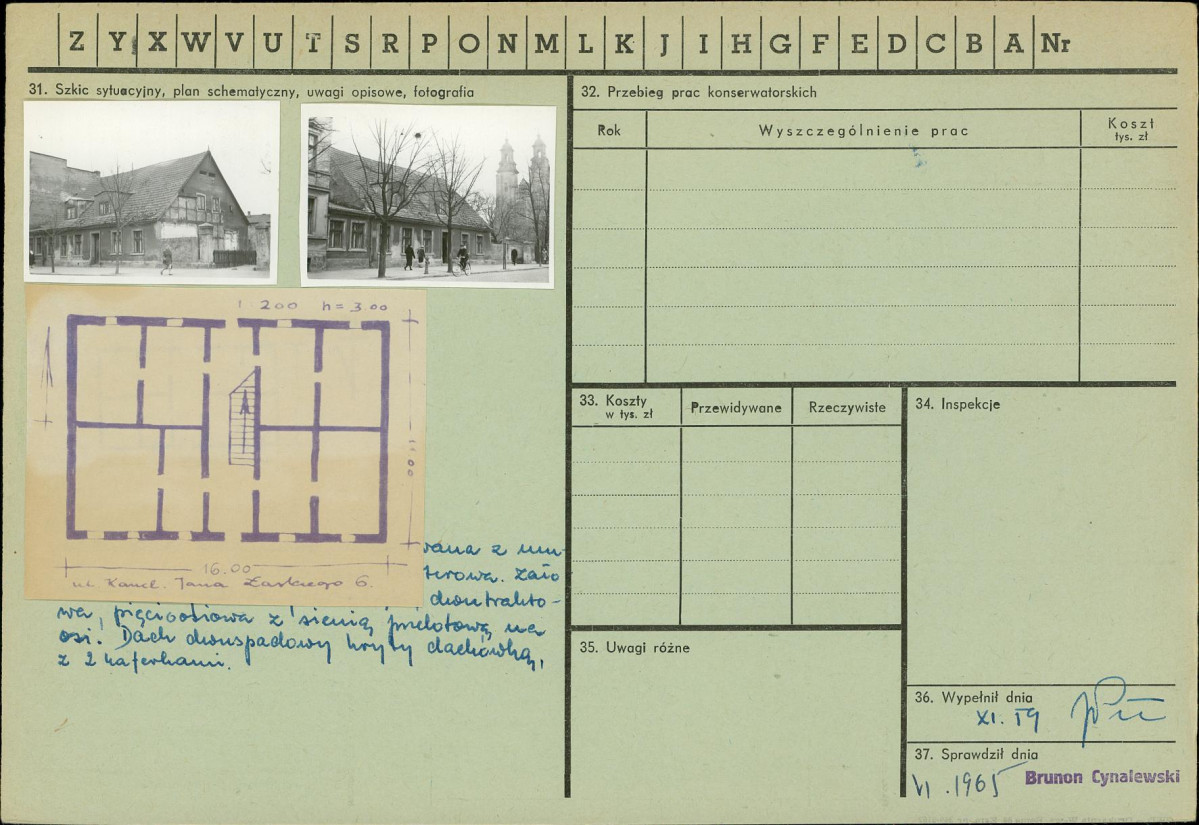 Z Y X W V U T S R P O N M L K J I H G F E D C B A Nr
31. Szkic sytuacyjny, plan schematyczny, uwagi opisowe, fotografia
1 200 h = 3.00
11.00
16.00
ul. Kancl. Jana Łaskiego 6.
wana z mu-
terowa. Zało
dwutrakto-
wa, pięcioosiowa z sienią przelotową na
osi. Dach dwuspadowy kryty dachówką,
z 2 kaferkami.
32. Przebieg prac konserwatorskich
Rok Wyszczególnienie prac Koszt
tys. zł
33. Koszty
w tys. zł
Przewidywane Rzeczywiste
34. Inspekcje
35. Uwagi różne
36. Wypełnił dnia
XI. 59
37. Sprawdził dnia
VI .1965 Brunon Cynalewski